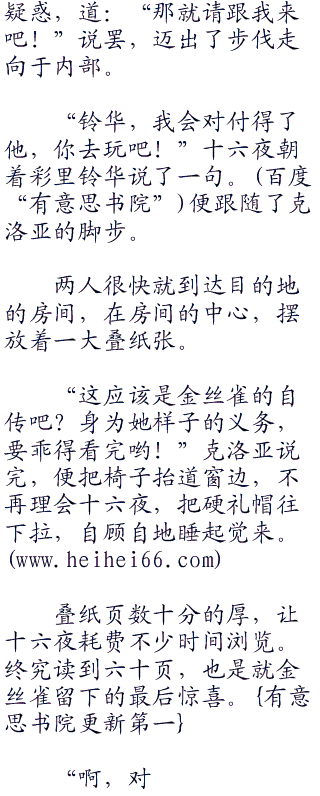 疑惑，道：“那就请跟我来
吧！”说罢，迈出了步伐走
向于内部。
“铃华，我会对付得了
他，你去玩吧！”十六夜朝
着彩里铃华说了一句。(百度
“有意思书院”)便跟随了克
洛亚的脚步。
两人很快就到达目的地
的房间，在房间的中心，摆
放着一大叠纸张。
“这应该是金丝雀的自
传吧？身为她样子的义务，
要乖得看完哟！”克洛亚说
完，便把椅子抬道窗边，不
再理会十六夜，把硬礼帽往
下拉，自顾自地睡起觉来。
(www.heihei66.com)
叠纸页数十分的厚，让
十六夜耗费不少时间浏览。
终究读到六十页，也是就金
丝雀留下的最后惊喜。{有意
思书院更新第一}
“啊，对